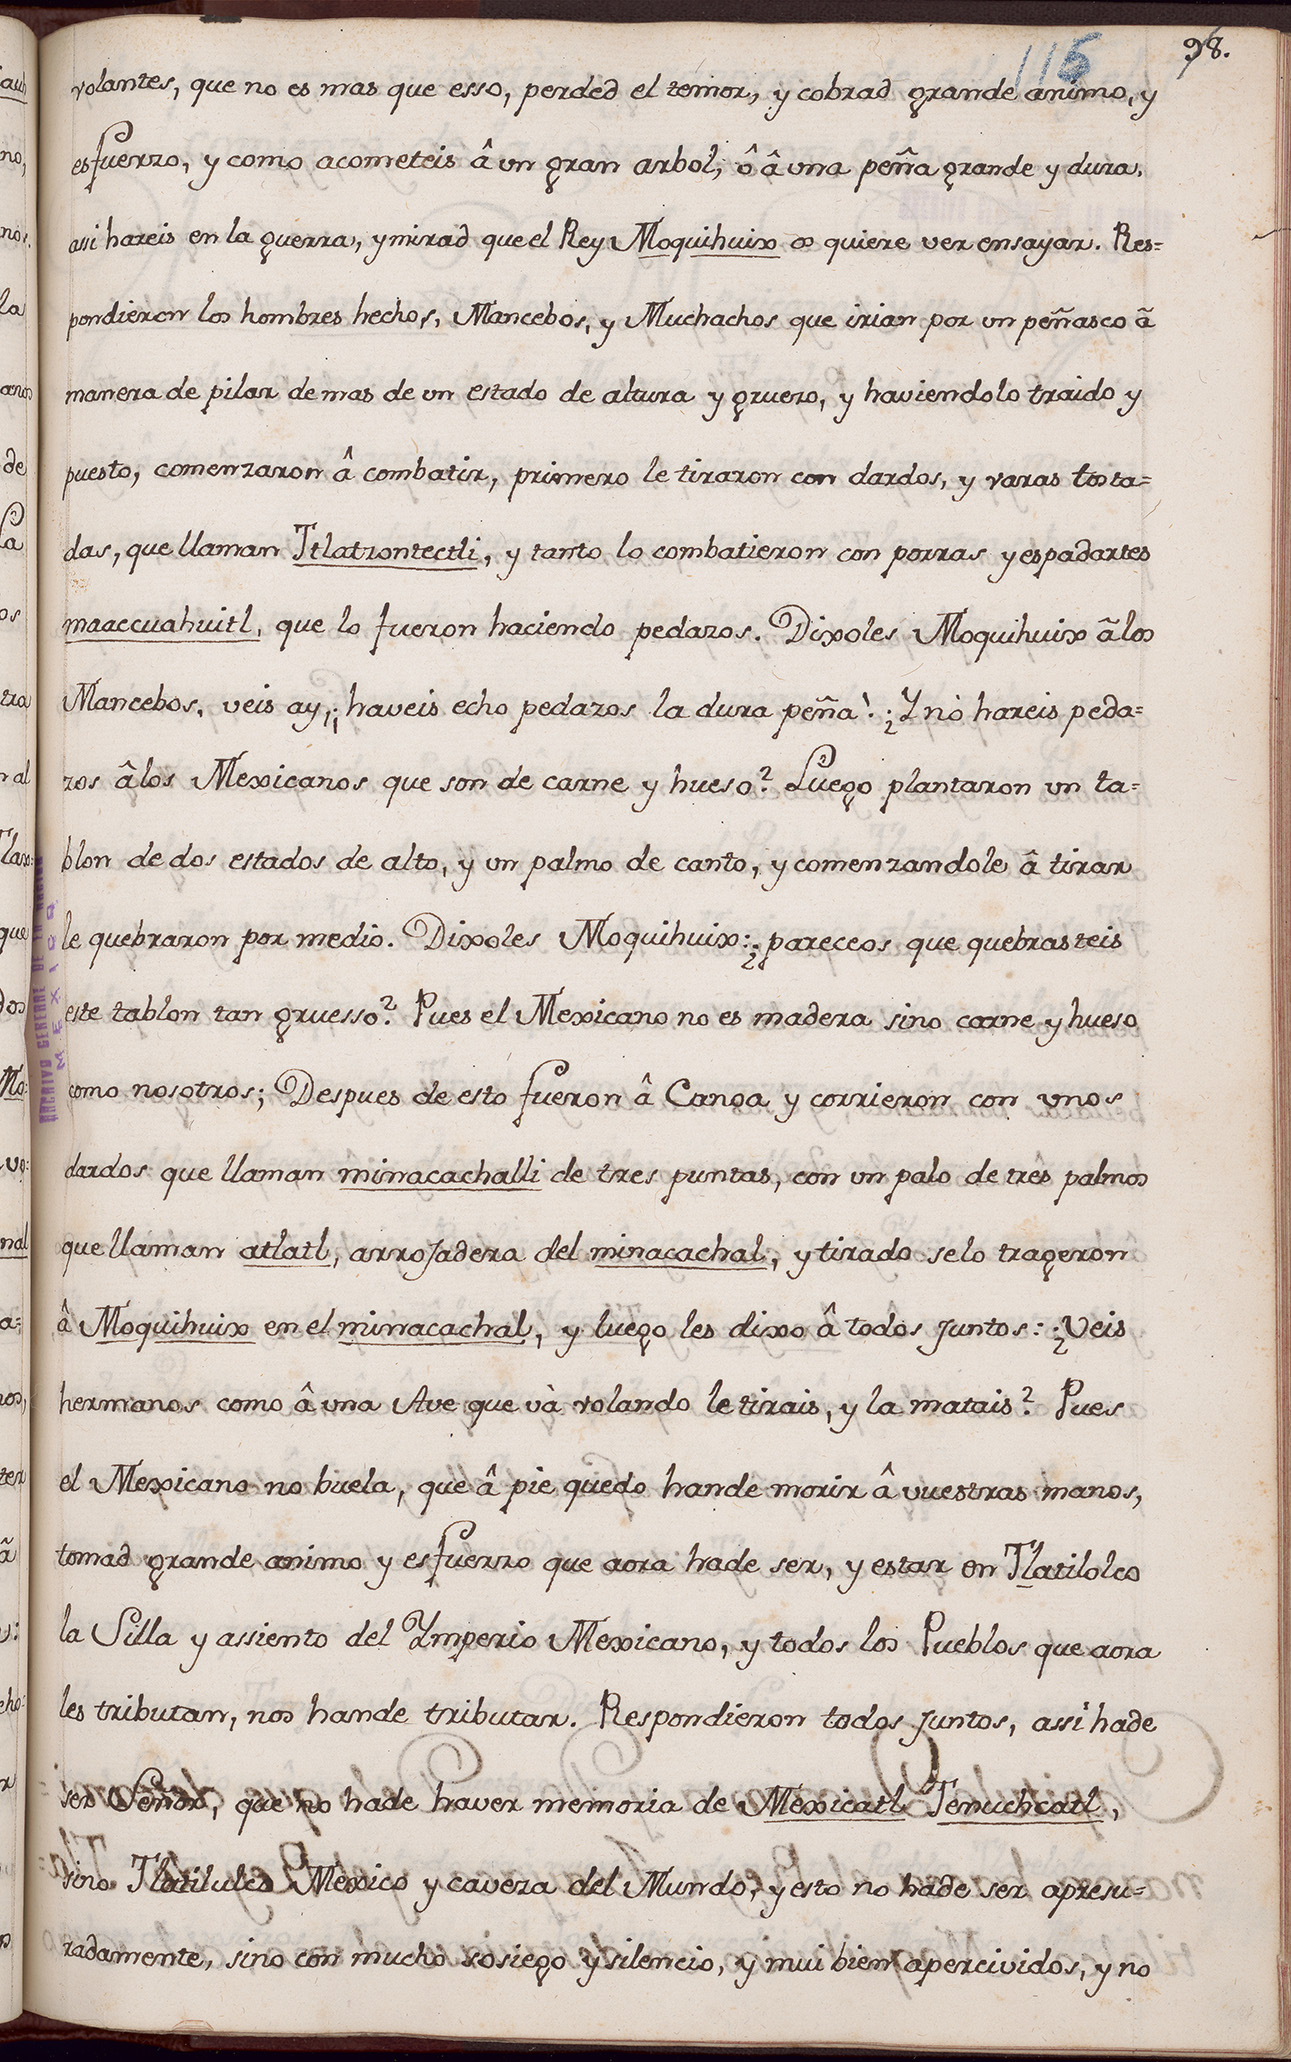 115
98.
volantes, que no es mas que esso, perded el temor, y cobrad grande animo, y
esfuerzo, y como acometeis â un gran arbol, ô â una peña grande y dura,
assi hareis en la guerra, y mirad que el Rey Moquihuix os quiere ver ensayar. Res=
pondieron los hombres hechos, Mancebos, y Muchachos que irian por un peñasco ã
manera de pilar de mas de un estado de altura y gruezo, y haviendolo traido y
puesto, comenzaron â combatir, primero le tiraron con dardos, y varas tosta=
das, que llaman Ttlatzontectli, y tanto lo combatieron con porras y espadartes
maaccuahuitl, que lo fueron haciendo pedazos. Dixoles Moquihuix ã los
Mancebos, veis ay, ¡haveis echo pedazos la dura peña! ¿Y nò hareis peda=
zos â los Mexicanos que son de carne y hueso? Luego plantaron un ta=
blon de dos estados de alto, y un palmo de canto, y comenzandole â tirar
le quebraron por medio. Dixoles Moquihuix: ¿pareceos que quebrasteis
este tablon tan gruesso? Pues el Mexicano no es madera sino carne y hueso
como nosotros; Despues de esto fueron â Canoa y corrieron con unos
dardos que llaman minacachalli de tres puntas, con un palo de três palmos
que llaman atlatl, arrojadera del minacachal, y tirado selo trageron
â Moquihuix en el minacachal, y luego les dixo â todos juntos: ¿Veis
hermanos como â una Ave que và volando le tirais, y la matais? Pues
el Mexicano no buela, que â pie quedo hande morir â vuestras manos,
tomad grande animo y esfuerzo que aora hade ser, y estar en Tlatilolco
la Silla y assiento del Ymperio Mexicano, y todos los Pueblos que aora
les tributan, nos hande tributar. Respondieron todos juntos, assi hade
ser Señor, que no hade haver memoria de Mexicatl Tenuchcatl,
sino Tlatilulco Mexico y caveza del Mundo, y esto no hade ser apresu=
radamente, sino con mucho sosiego y silencio, y mui bien apercividos, y no
ARCHIVO GENERAL DE LA NACION
MEXICO